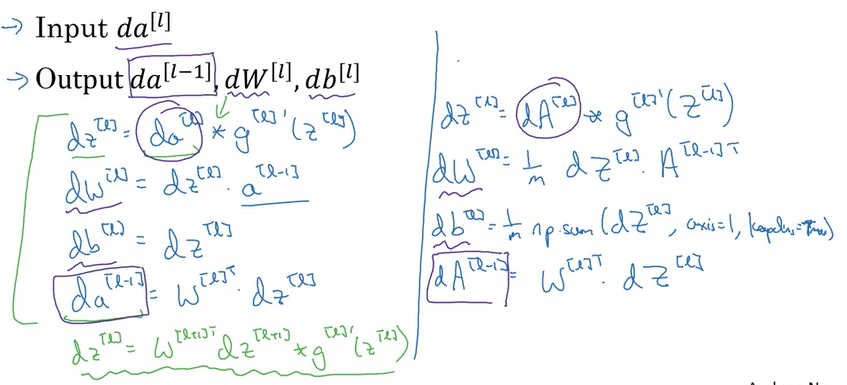 → Input da^[l]
→ Output da^[l-1], dW^[l], db^[l]
dz^[l] = da^[l] * g^[l]'(z^[l])
dW^[l] = dz^[l] · a^[l-1]
db^[l] = dz^[l]
da^[l-1] = W^[l]T · dz^[l]
dz^[l] = W^[l+1]T dz^[l+1] * g^[l]'(z^[l])
dZ^[l] = dA^[l] * g^[l]'(Z^[l])
dW^[l] = 1/m dZ^[l] · A^[l-1]T
db^[l] = 1/m np.sum(dZ^[l], axis=1, keepdims=True)
dA^[l-1] = W^[l]T · dZ^[l]